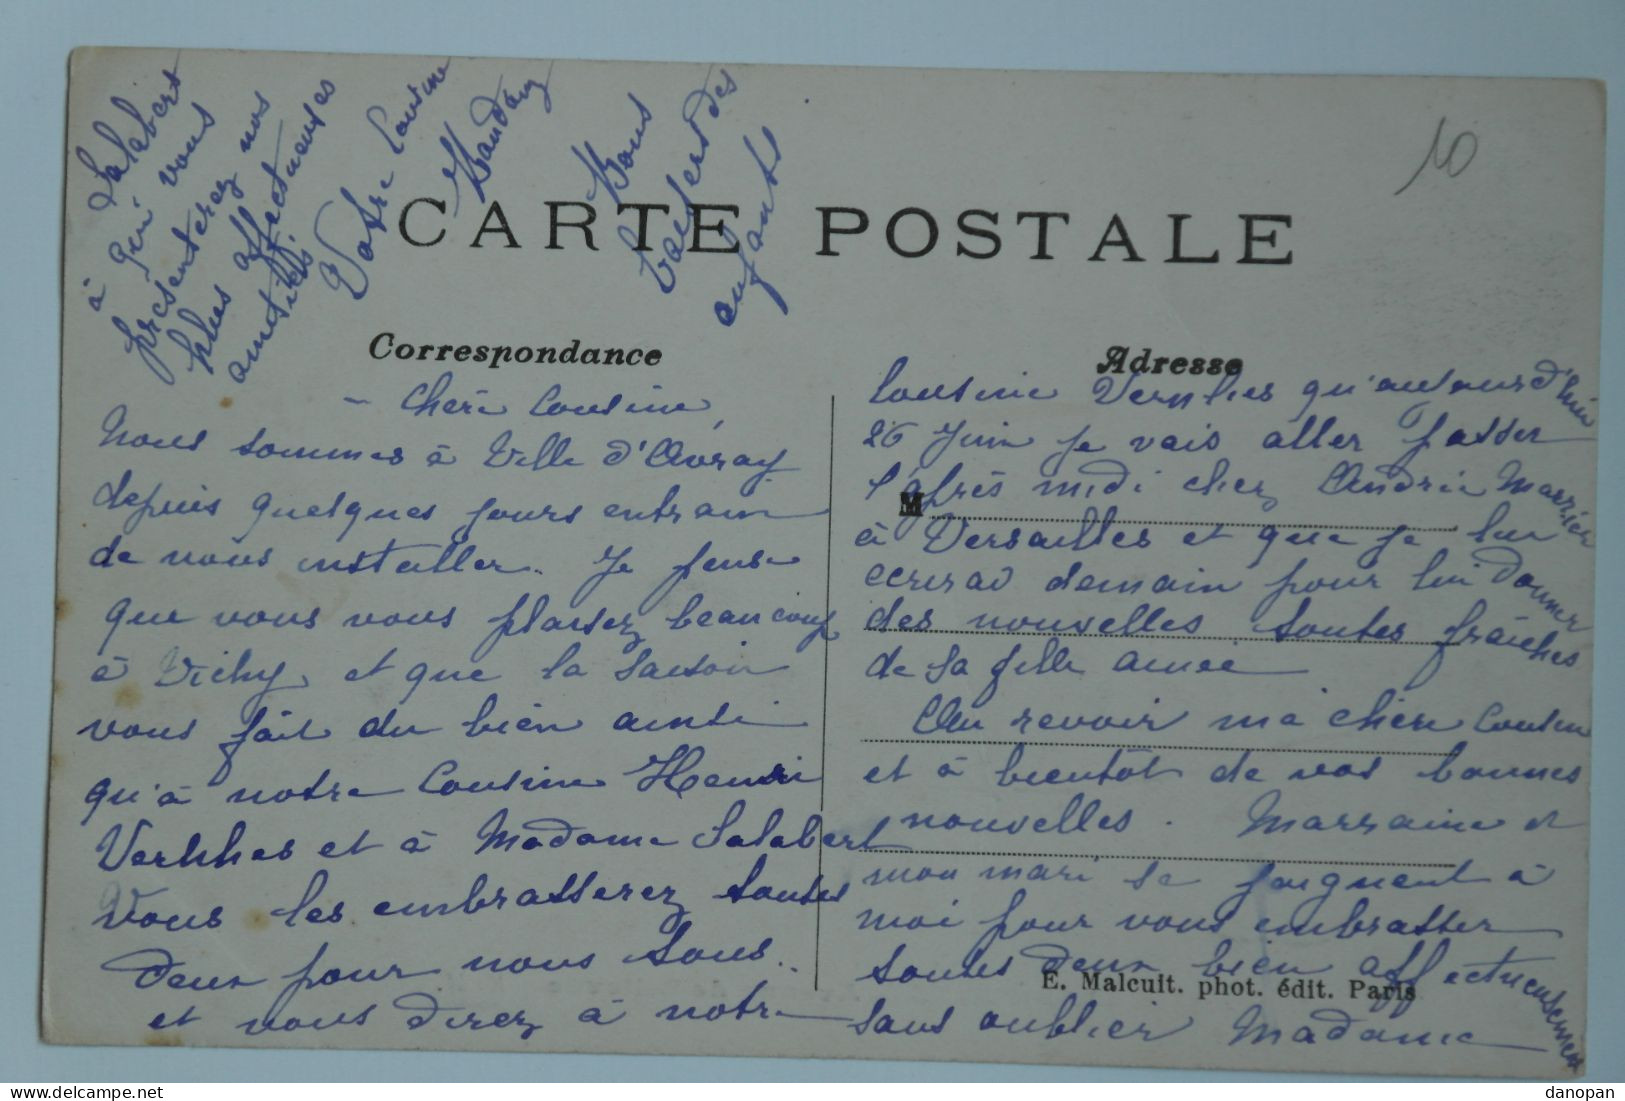 CARTE POSTALE
Correspondance
Adresse
10
M
- Chère Cousine,
Nous sommes à Ville d'Avray
depuis quelques jours entrain
de nous installer. Je pense
que vous vous plaisez beaucoup
à Vichy et que la saison
vous fait du bien ainsi
qu'à notre Cousine Henri
et à Madame Salabert
Vous les embrasserez toutes
deux pour nous tous.
et vous direz à notre
Cousine qu'aujourd'hui
26 Juin je vais aller passer
l'après midi chez Andrée Marrier
à Versailles et que je lui
ecrirai demain pour lui donner
des nouvelles toutes fraîches
de sa fille ainée
Au revoir ma chère Cousine
et à bientôt de vos bonnes
nouvelles. Marraine et
mon mari se joignent à
moi pour vous embrasser
toutes deux bien affectueusement
sans oublier Madame
Salabert
à qui vous
présenterez nos
plus affectueuses
amitiés.
Votre Cousine
Bons
baisers des
enfants
E. Malcuit. phot. édit. Paris
www.delcampe.net
danopan